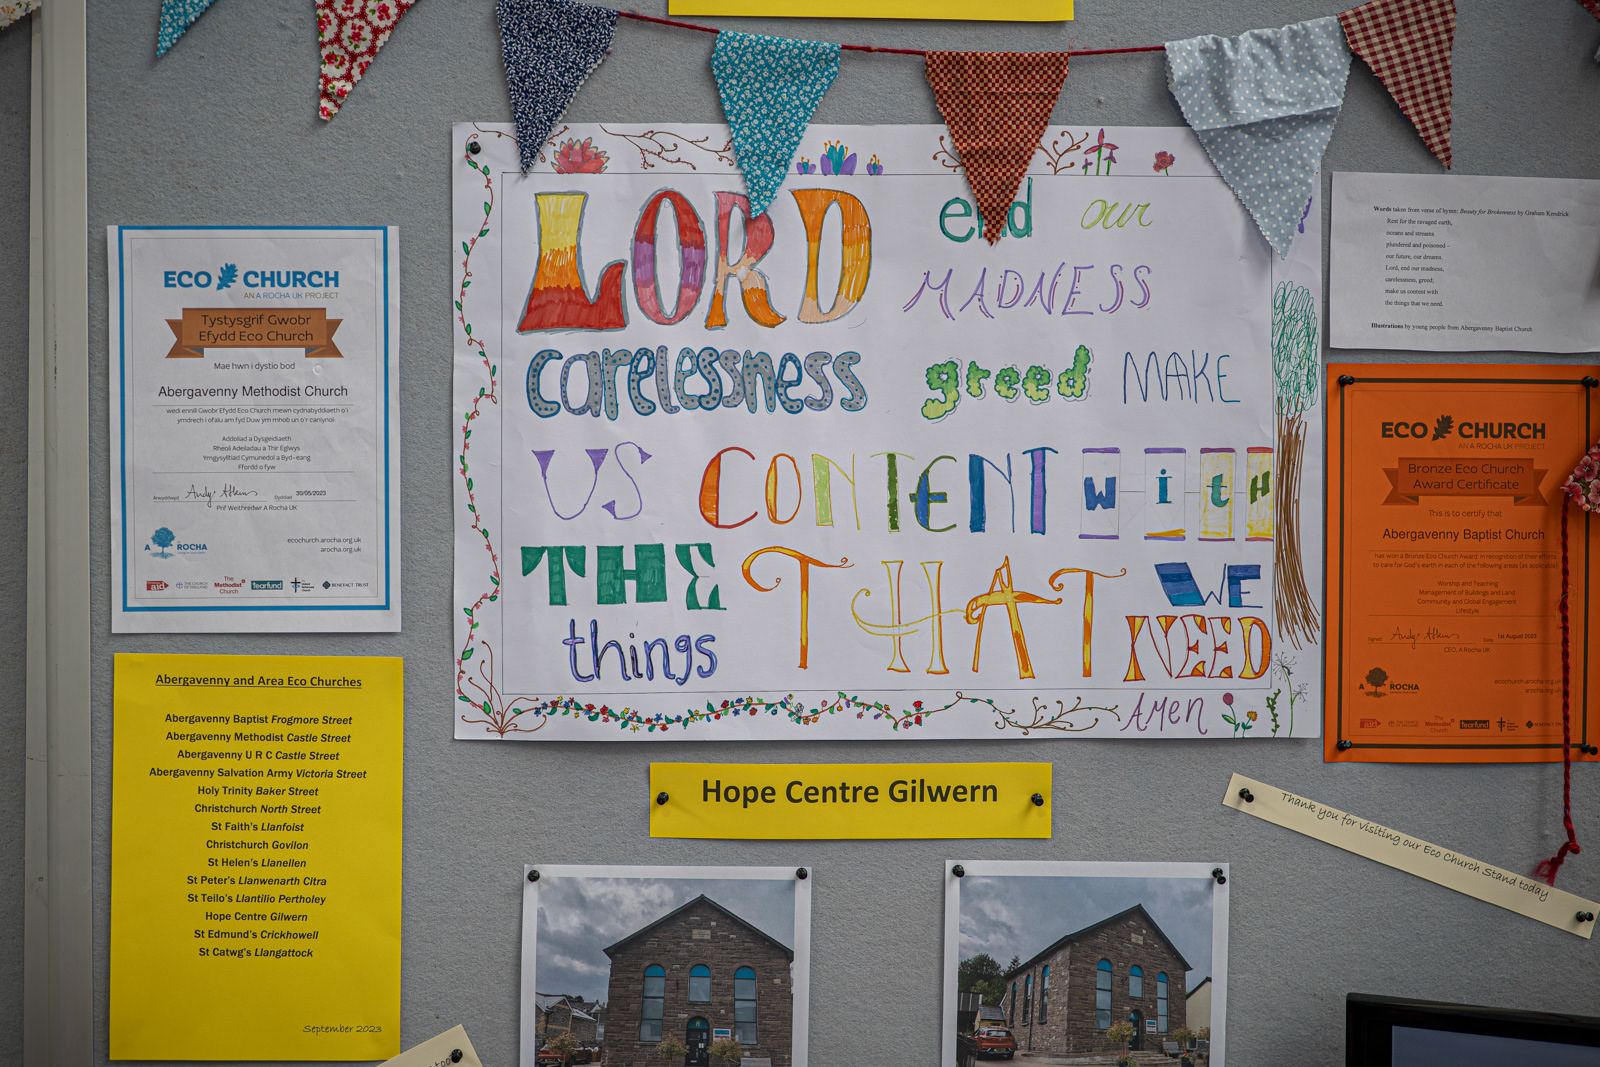 ECO CHURCH
AN A ROCHA UK PROJECT
Tystysgrif Gwobr
Efydd Eco Church
Mae hwn i dystio bod
Abergavenny Methodist Church
wedi ennill Gwobr Efydd Eco Church mewn cydnabyddiaeth o'i
ymdrech i ofalu am fyd Duw ym mhob un o'r canlynol:
Addoliad a Dysgeidiaeth
Rheoli Adeiladau a Thir Eglwys
Ymgysylltiad Cymunedol a Byd-eang
Ffordd o fyw
Arwyddwyd Andy Atkins Dyddiad 30/05/2023
Prif Weithredwr A Rocha UK
A ROCHA
ecochurch.arocha.org.uk
arocha.org.uk
aid
THE CHURCH OF ENGLAND
The Methodist Church
tearfund
BENEFACT TRUST
Abergavenny and Area Eco Churches
Abergavenny Baptist Frogmore Street
Abergavenny Methodist Castle Street
Abergavenny U R C Castle Street
Abergavenny Salvation Army Victoria Street
Holy Trinity Baker Street
Christchurch North Street
St Faith's Llanfoist
Christchurch Govilon
St Helen's Llanellen
St Peter's Llanwenarth Citra
St Teilo's Llantilio Pertholey
Hope Centre Gilwern
St Edmund's Crickhowell
St Catwg's Llangattock
September 2023
LORD end our
MADNESS
carelessness greed MAKE
US CONTENT with
THE THAT WE
things NEED
AMEN
Hope Centre Gilwern
Words taken from verse of hymn: Beauty for Brokenness by Graham Kendrick
Rest for the ravaged earth,
oceans and streams
plundered and poisoned –
our future, our dreams.
Lord, end our madness,
carelessness, greed;
make us content with
the things that we need.
Illustrations by young people from Abergavenny Baptist Church
ECO CHURCH
AN A ROCHA UK PROJECT
Bronze Eco Church
Award Certificate
This is to certify that
Abergavenny Baptist Church
has won a Bronze Eco Church Award in recognition of their efforts
to care for God's earth in each of the following areas (as applicable)
Worship and Teaching
Management of Buildings and Land
Community and Global Engagement
Lifestyle
Signed Andy Atkins Date 1st August 2023
CEO, A Rocha UK
A ROCHA
ecochurch.arocha.org.uk
arocha.org.uk
aid
The Methodist Church
tearfund
BENEFACT TRUST
Thank you for visiting our Eco Church Stand today